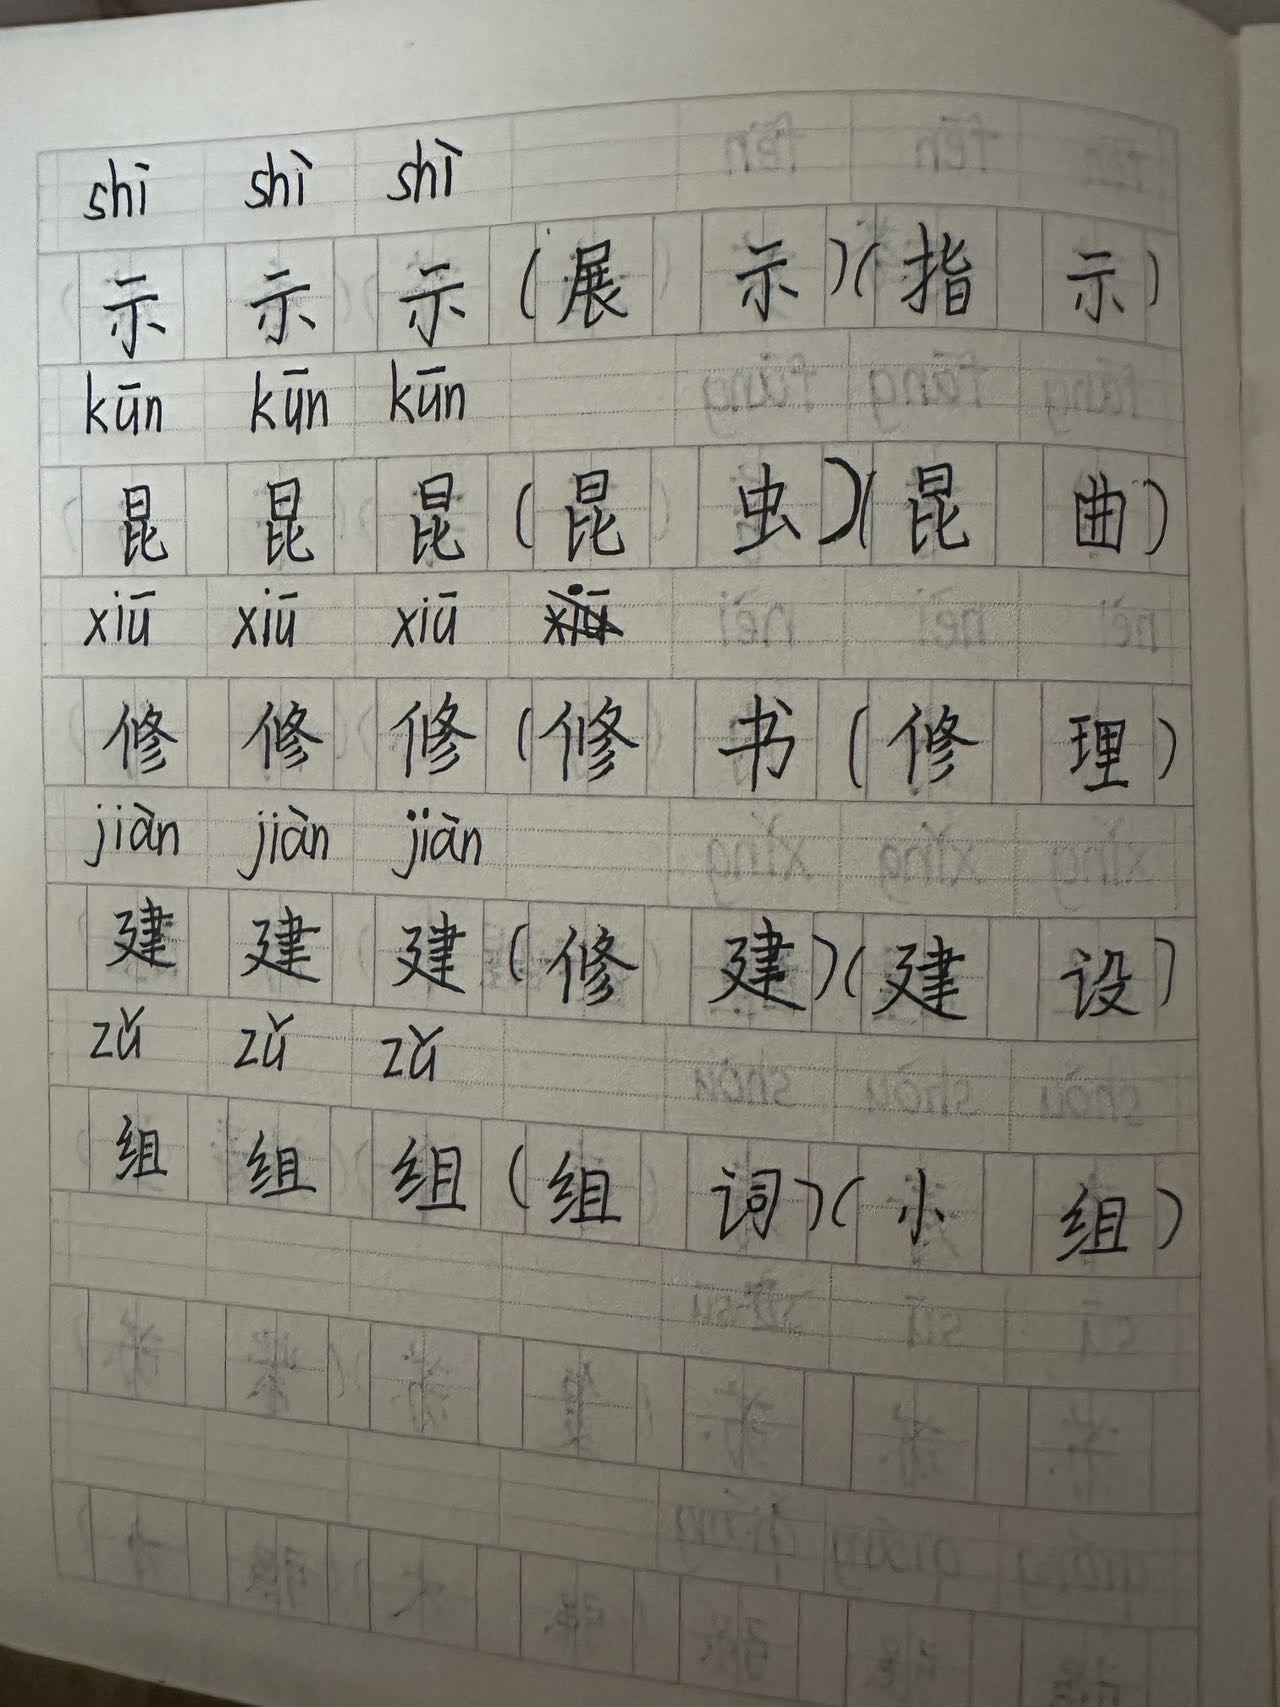 shī shì shì
示 示 示 (展 示)(指 示)
kūn kūn kūn
昆 昆 昆 (昆 虫)(昆 曲)
xiū xiū xiū
修 修 修 (修 书 (修 理)
jiàn jiàn jiàn
建 建 建 (修 建)(建 设)
zǔ zǔ zǔ
组 组 组 (组 词)(小 组)